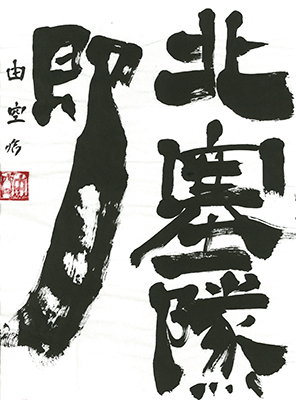 北塞隊
即
由空